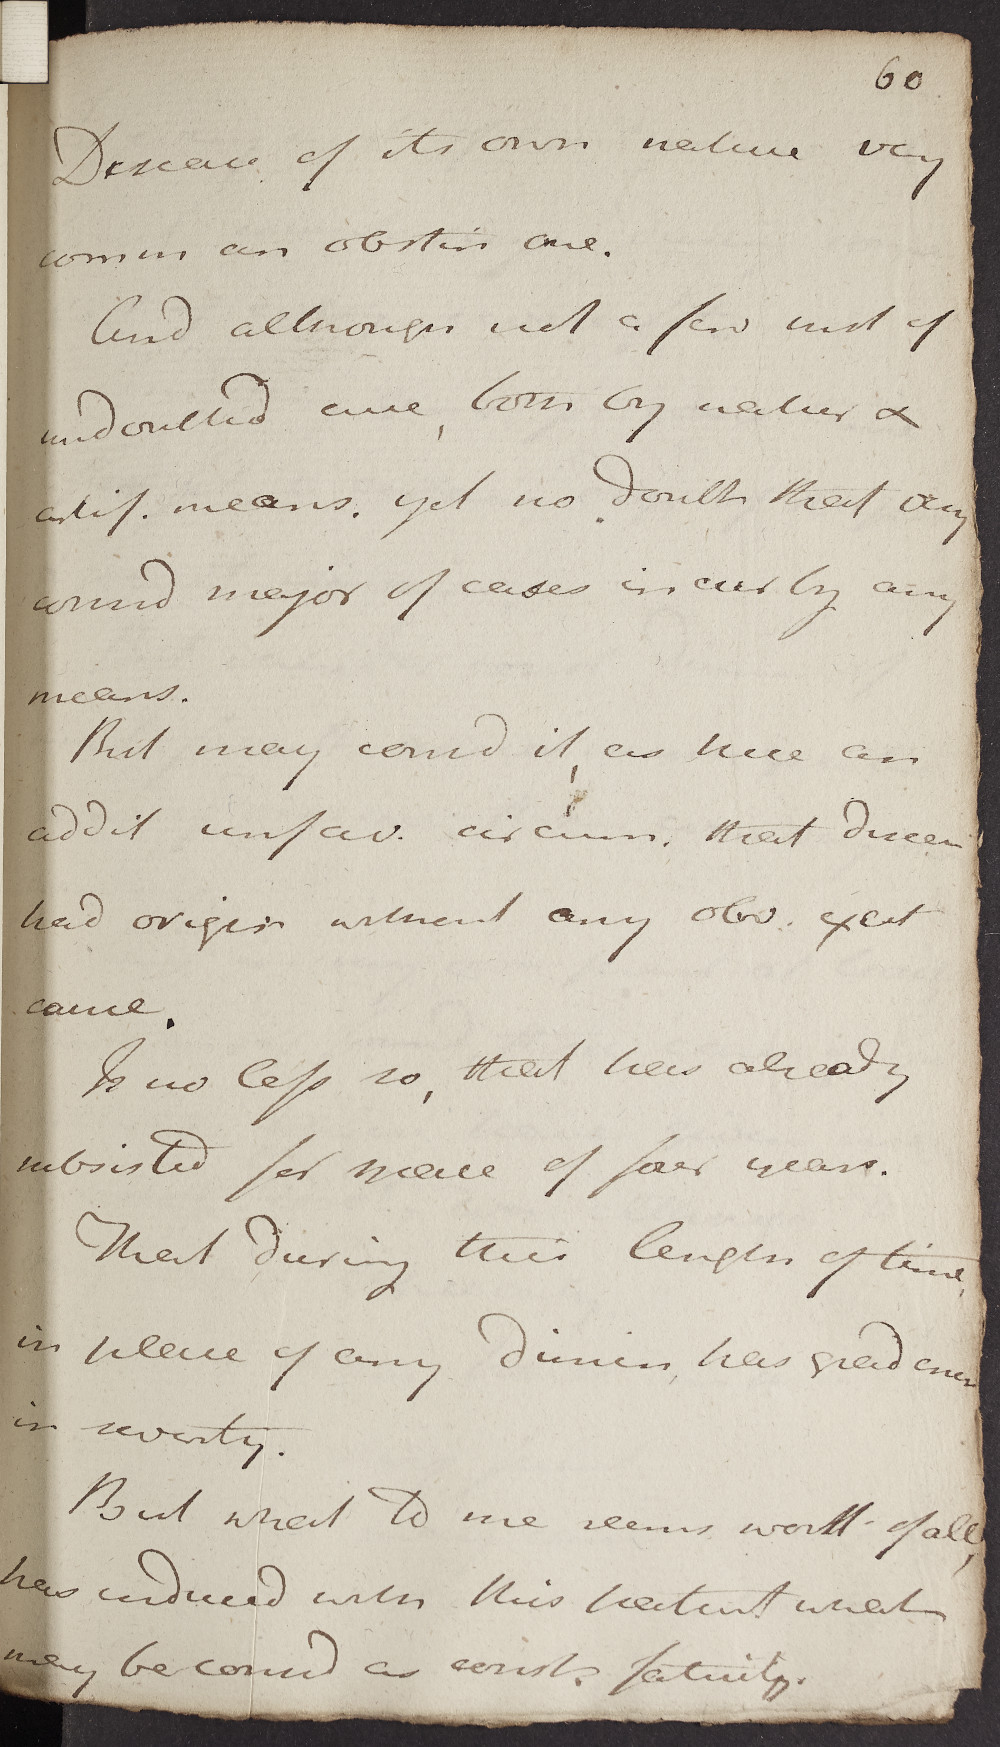 60
Disease of its own nature very
comm an obstin one.
And although not a few inst of
undoubted cure, both by natur &
artif. means. yet no doubt that very
consid major of cases incur by any
means.
But may consid it, as here an
addit unfav. circum. that disease
had origin without any obv. excit
cause.
Is no less so, that has already
subsisted for space of four years.
That during this length of time,
in place of any dimin, has grad encr
in severity.
But what to me seems worst of all,
has induced with this patient what
may be consid as const. fatuity.